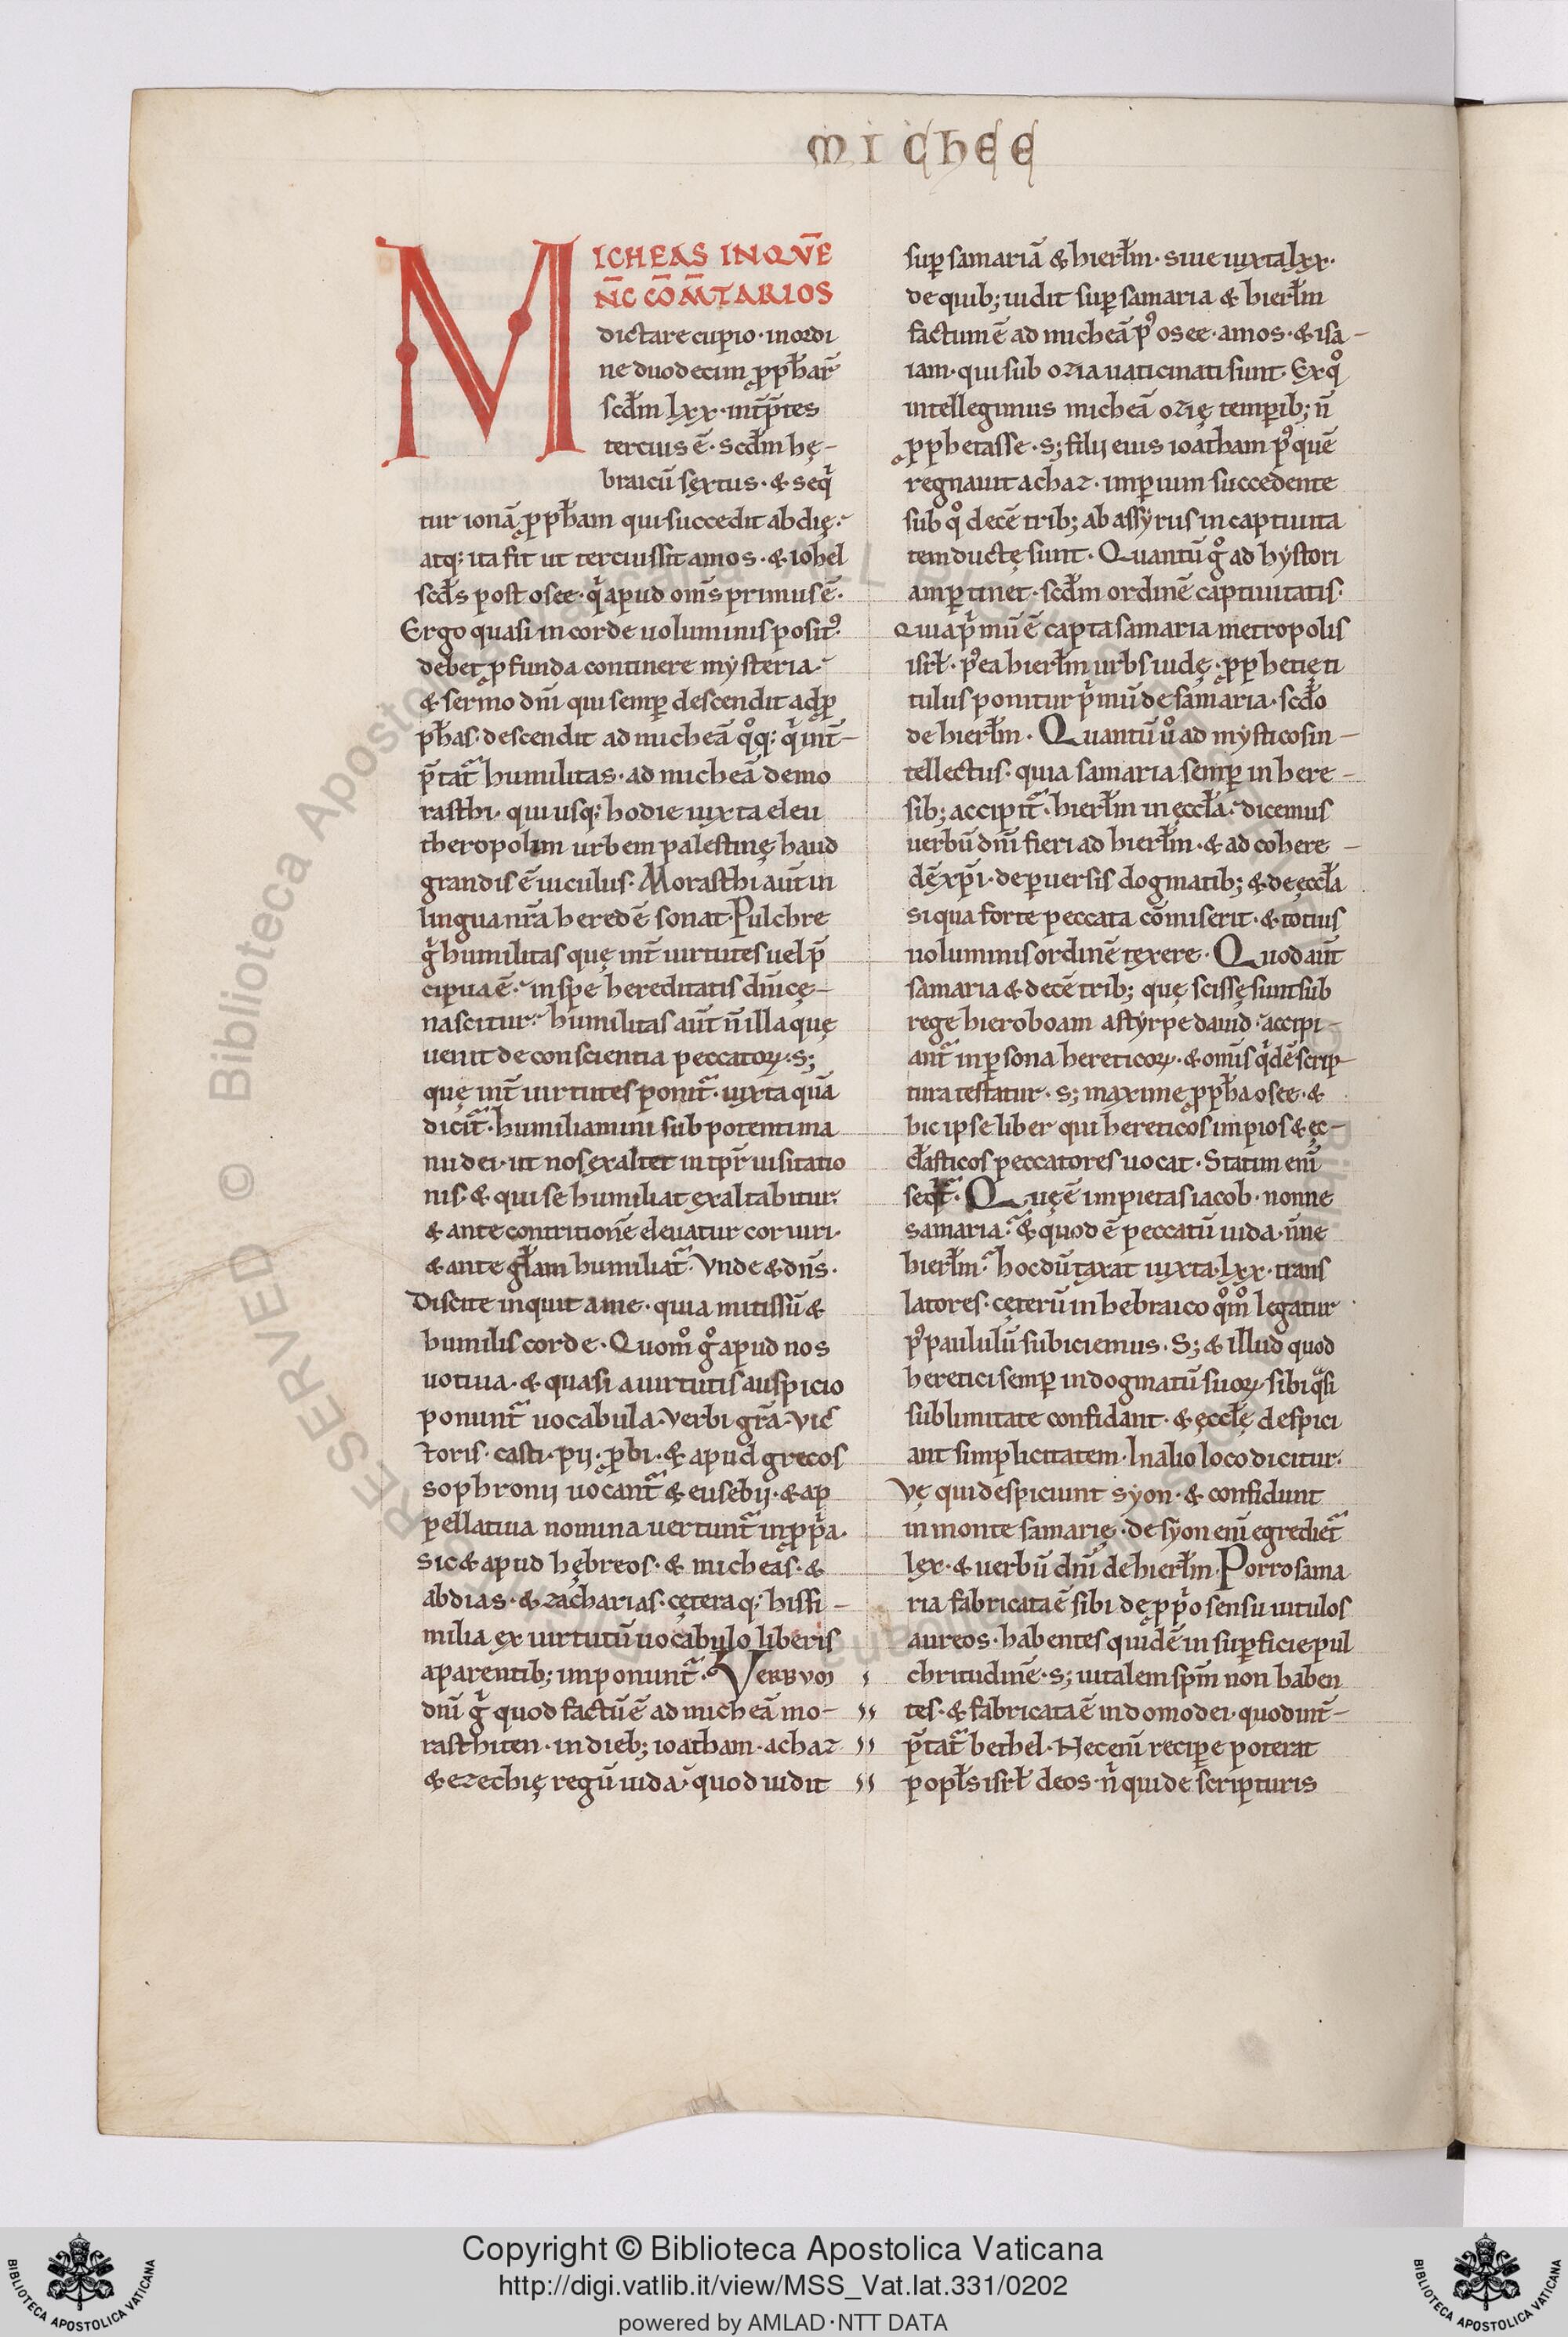 MICHEE
MICHEAS INQVE̅
N̅C CO̅M̅TARIOS
dictare cupio· in ordi
ne duodecim ꝓph̅ar̅
scd̅m lxx· int̅p̅tes
tercius ē· Scd̅m hę-
braicū sextus· & seq̇
tur ionā ꝓph̅am qui succedit abdię·
atq; ita fit ut tercius sit amos· & iohel
scd̅s post osee· q̇ apud om̅s primus ē·
Ergo quasi in corde uoluminis posit᷒
debet ꝓfunda continere mysteria·
& sermo dn̅i qui semꝑ descendit ad ꝓ
ph̅as· descendit ad micheā qͦq; q̇ int̅-
p̅tat᷑ humilitas· ad micheā de mo
rasthi· qui usq; hodie iuxta eleu
theropolim urbem palestinę haud
grandis ē uiculus· Morasthi aut̅ in
lingua nr̅a heredē sonat· Pulchre
g̍ humilitas quę int̅ uirtutes uel p̅
cipua ē· in spe hereditatis dn̅icę-
nascitur· humilitas aut̅ n̅ illa quę
uenit de conscientia peccatoꝝ· s;
quę int̅ uirtutes ponit᷑· iuxta quā
dicit᷑· humiliamini sub potenti ma
nu dei· ut nos exaltet in tp̅r uisitatio
nis· & qui se humiliat exaltabitur·
& ante contritionē eleuatur cor uiri·
& ante gl̅am humiliat᷑· Vnde & dn̅s·
Discite inquit a me· quia mitis sū &
humilis corde· Quomͦ gͦ apud nos
uotiua· & quasi a uirtutis auspicio
ponunt᷑ uocabula· Verbi gr̅a· Vic
toris· casti· pij· ꝓbi· & apud grecos
sophronii uocant᷑ & eusebij· & ap
pellatiua nomina uertunt᷑ in ꝓp̍a·
Sic & apud hębreos· & micheas· &
abdias· & zacharias· cętera q; his si-
milia ex uirtutū uocabulo liberis
a parentib; imponunt᷑· VERBVM
dn̅i g̍ quod factū ē ad micheā mo-
rasthiten· in dieb; ioatham· achaz
& ezechię regū iuda· quod uidit
suꝑ samariā & hierl̅m· siue iuxta lxx·
de quib; uidit suꝑ samaria & hierl̅m
factum ē ad micheā p᷒ osee· amos· & isa-
iam· qui sub ozia uaticinati sunt· Ex qͦ
intellegimus micheā ozię temꝑib; n̅
ꝓphetasse· s; filij eius ioatham p᷒ quē
regnauit achaz· imꝑium succedente
sub qͦ decē trib; ab assyrus in captiuita
tem ductę sunt· Quantū gͦ ad hystori
am ꝑtinet· scd̅m ordinē captiuitatis·
Quia p̍mū ē capta samaria metropolis
isrl̅· p᷒ea hierl̅m urbs iudę· ꝓphetię ti
tulus ponitur p̍mū de samaria· scd̅o
de hierl̅m· Quantū uͦ ad mysticos in-
tellectus· quia samaria semꝑ in here-
sib; accipit᷑· hierl̅m in ęccl̅a· dicemus
uerbū dn̅i fieri ad hierl̅m· & ad cohere-
dē xp̅i· de ꝑuersis dogmatib; & de ęccl̅a
si qua forte peccata cōmiserit· & totius
uoluminis ordinē texere· Quod aut̅
samaria & decē trib; quę scissę sunt sub
rege hieroboam a styrpe dauid· accipi-
ant᷑ in ꝑsona hereticoꝝ· & om̅is q̇dē scrip-
tura testatur· s; maxime ꝓph̅a osee· &
hic ipse liber qui hereticos impios & ęc-
cl̅asticos peccatores uocat· Statim eni̅
seqt᷑· Quę ē impietas iacob· nonne
samaria· & quod ē peccatū iuda· n̅ne
hierl̅m· hoc dūtaxat iuxta· lxx· trans
latores· cęterū in hebraico qͦmͦ legatur
p᷒ paululū subiciemus· S; & illud quod
heretici semꝑ in dogmatū suoꝝ sibi qͣsi
sublimitate confidant· & ęccl̅ę despici
ant simplicitatem· In alio loco dicitur·
Vę qui despiciunt syon· & confidunt
in monte samarię· de syon eni̅ egrediet᷑
lex· & uerbū dn̅i de hierl̅m· Porro sama
ria fabricata ē sibi de ꝓp̍o sensu uitulos
aureos· habentes quidē in suꝑficie pul
chritudinē· s; uitalem sp̅m non haben
tes· & fabricata ē in domo dei· quod int̅-
p̅tat᷑ bethel· Nec eni̅ reciꝑe poterat
popl̅s isrl̅ deos· n̍ qui de scripturis
Copyright © Biblioteca Apostolica Vaticana
http://digi.vatlib.it/view/MSS_Vat.lat.331/0202
powered by AMLAD·NTT DATA
BIBLIOTECA APOSTOLICA VATICANA
BIBLIOTECA APOSTOLICA VATICANA